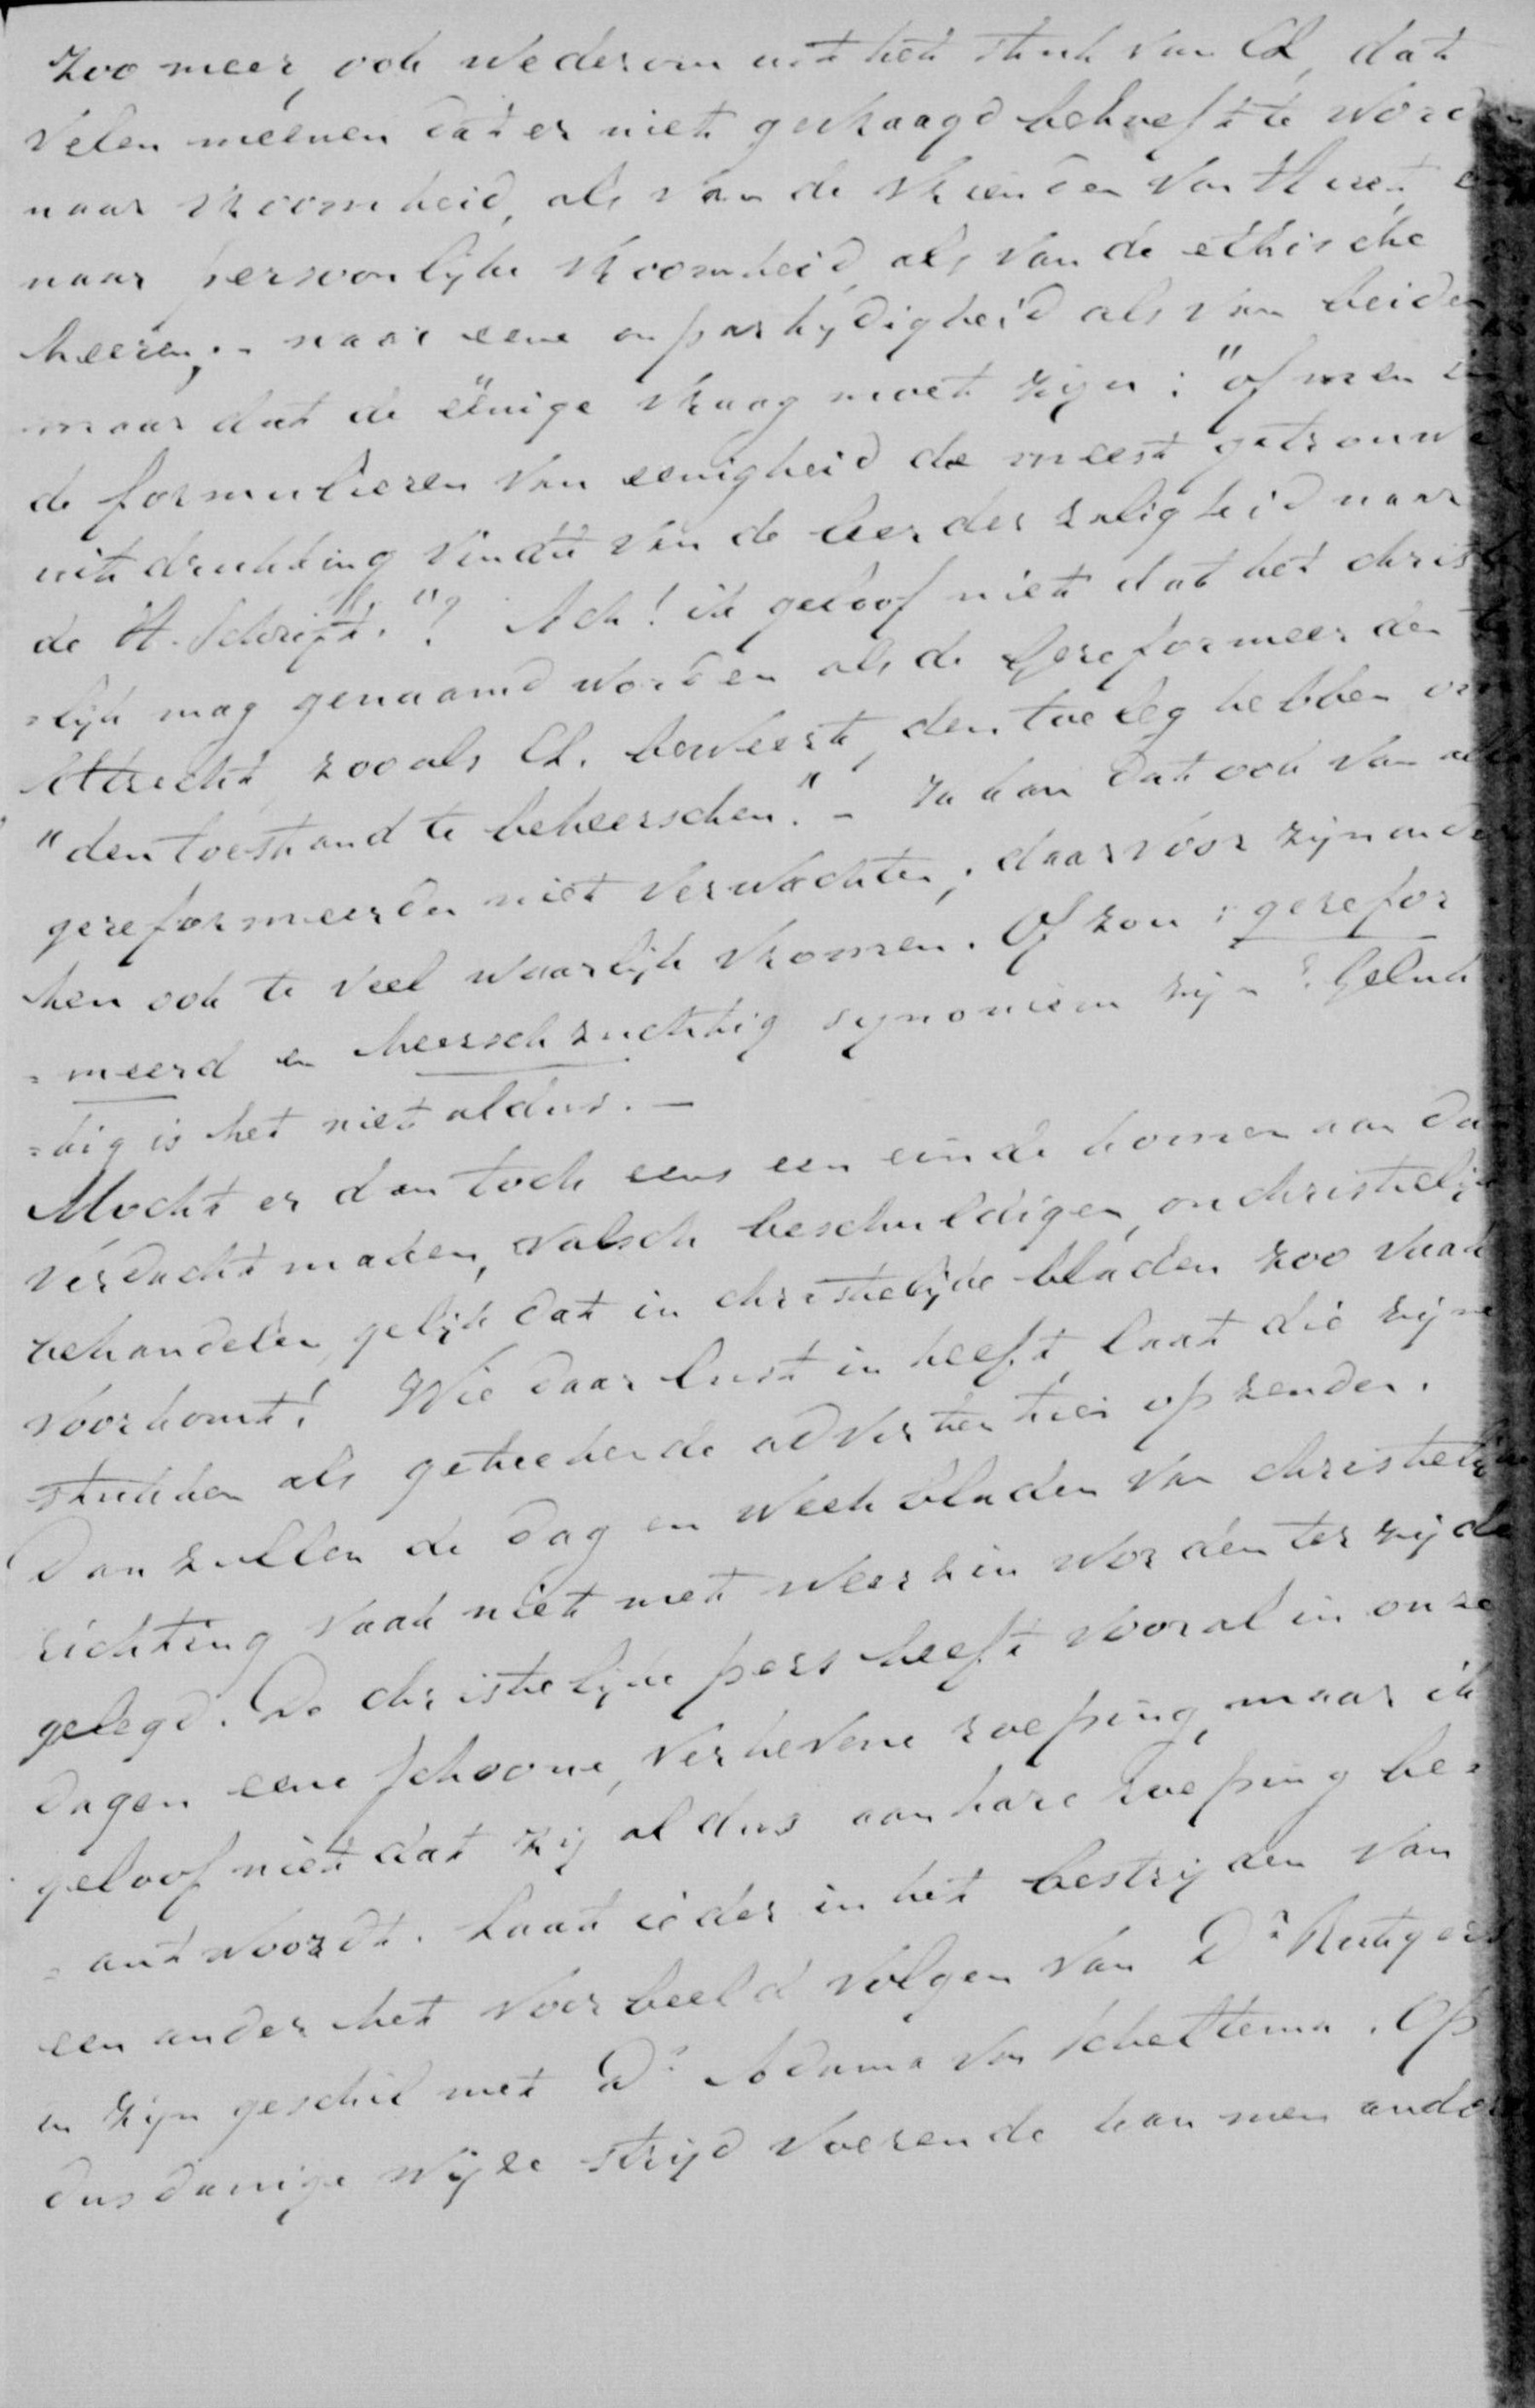 zoo meer, ook wederom uit het stuk van Cl, dat
velen meenen dat er niet gevraagd behoeft te worden
naar vroomheid, als van de vrienden van
naar persoonlijke vroomheid, als van de ethische
heeren; - naar eene onpartijdigheid als van beiden
maar dat de eënige vraag moet zijn: "of men in
de formulieren van eenigheid de meest getrouwe
uitdrukking vindt van de leer der zaligheid naar
de H. Schrift."? Ach! ik geloof niet dat het christe
=lijk mag genaamd worden als de Gereformeerden te
Utrecht, zooals Cl. beweert, den toeleg hebben om
"den toestand te beheerschen." - Ik kan dat ook van alle
gereformeerden niet verwachten; daarvoor zijn onder
hen ook te veel waarlijk vromen. Of zou: gerefor
=meerd en heerschzuchtig synoniem zijn? Geluk
=kig is het niet aldus. -
Mocht er dan toch eens een einde komen aan dat
verdachtmaken, valsch beschuldigen, onchristelijk
behandelen, gelijk dat in christelijke bladen zoo vaak
voorkomt! Wie daar lust in heeft, laat die zijne
stukken als geteekende advertentiën opzenden.
Dan zullen de dag en weekbladen van christelijke
richting vaak niet met weerzin worden ter zijde
gelegd. De christelijke pers heeft vooral in onze
dagen eene schoone, verhevene roeping, maar ik
geloof niet dat zij aldus aan hare roeping be=
=antwoordt. Laat ieder in het bestrijden van
een ander het voorbeeld volgen van Dr Rutgers
in zijn geschil met Ds Adama van Scheltema. Op
dusdanige wijze strijd voerende kan men ander